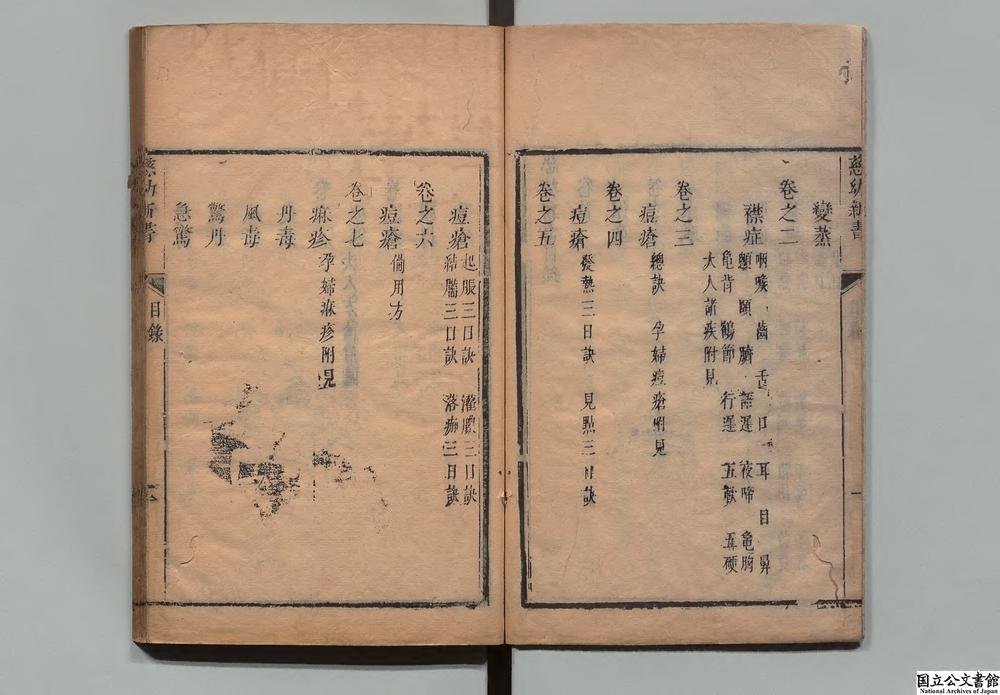 慈幼新書
變蒸
卷之二
襟症
咽喉 齒 舌 口 耳 目 鼻
顖 頤 臍 語遲 夜啼 龜胸
龜背 鶴節 行遲 五軟 五硬
大人諸疾附見
卷之三
痘瘡
總訣 孕婦痘瘡附見
卷之四
痘瘡
發熱三日訣 見點三日訣
卷之五
痘瘡
起脹三日訣 灌膿三日訣
結靨三日訣 落痂三日訣
卷之六
痘瘡
備用方
卷之七
痳疹
孕婦痳疹附見
丹毒
風毒
驚丹
急驚
慈幼新書
目錄
国立公文書館
National Archives of Japan